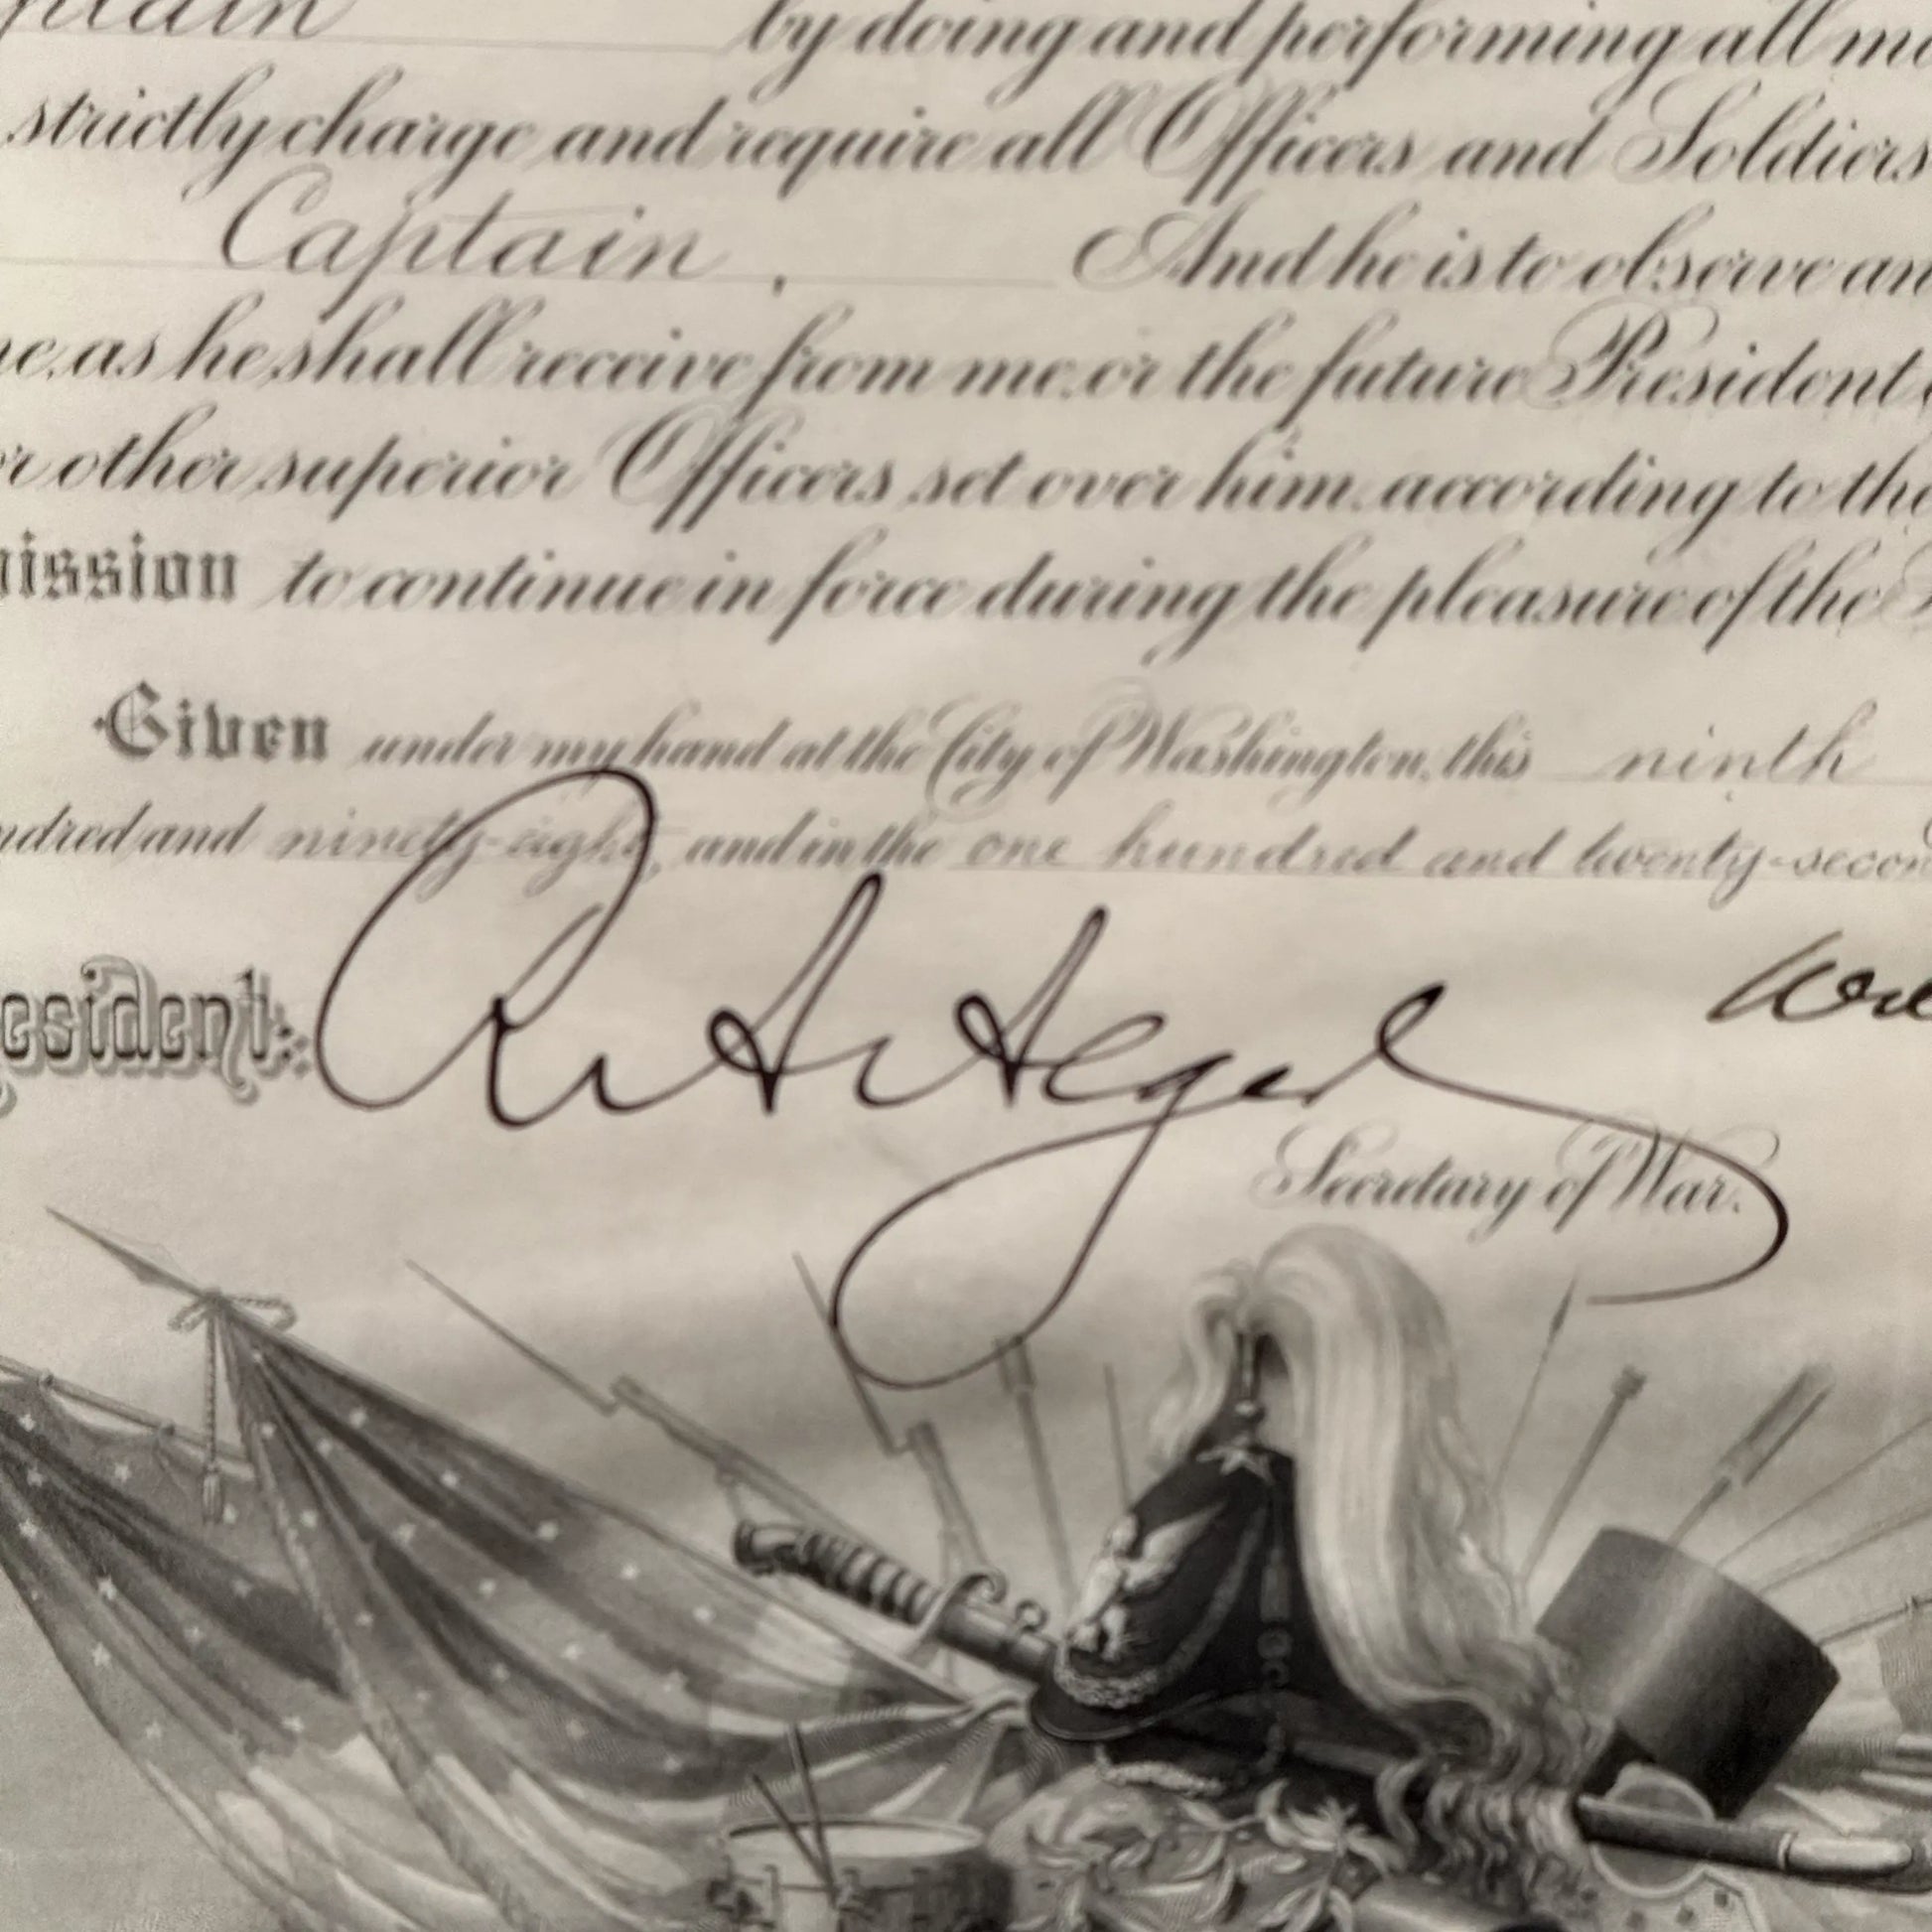 by doing and performing all
strictly charge and require all Officers and Soldiers
Captain, And he is to observe
as he shall receive from me, or the future President
other superior Officers set over him, according to
to continue in force during the pleasure of the
Given under my hand at the City of Washington, this ninth
and ninety-eight, and in the one hundred and twenty-secon
esident:
R A Alger
Secretary of War.